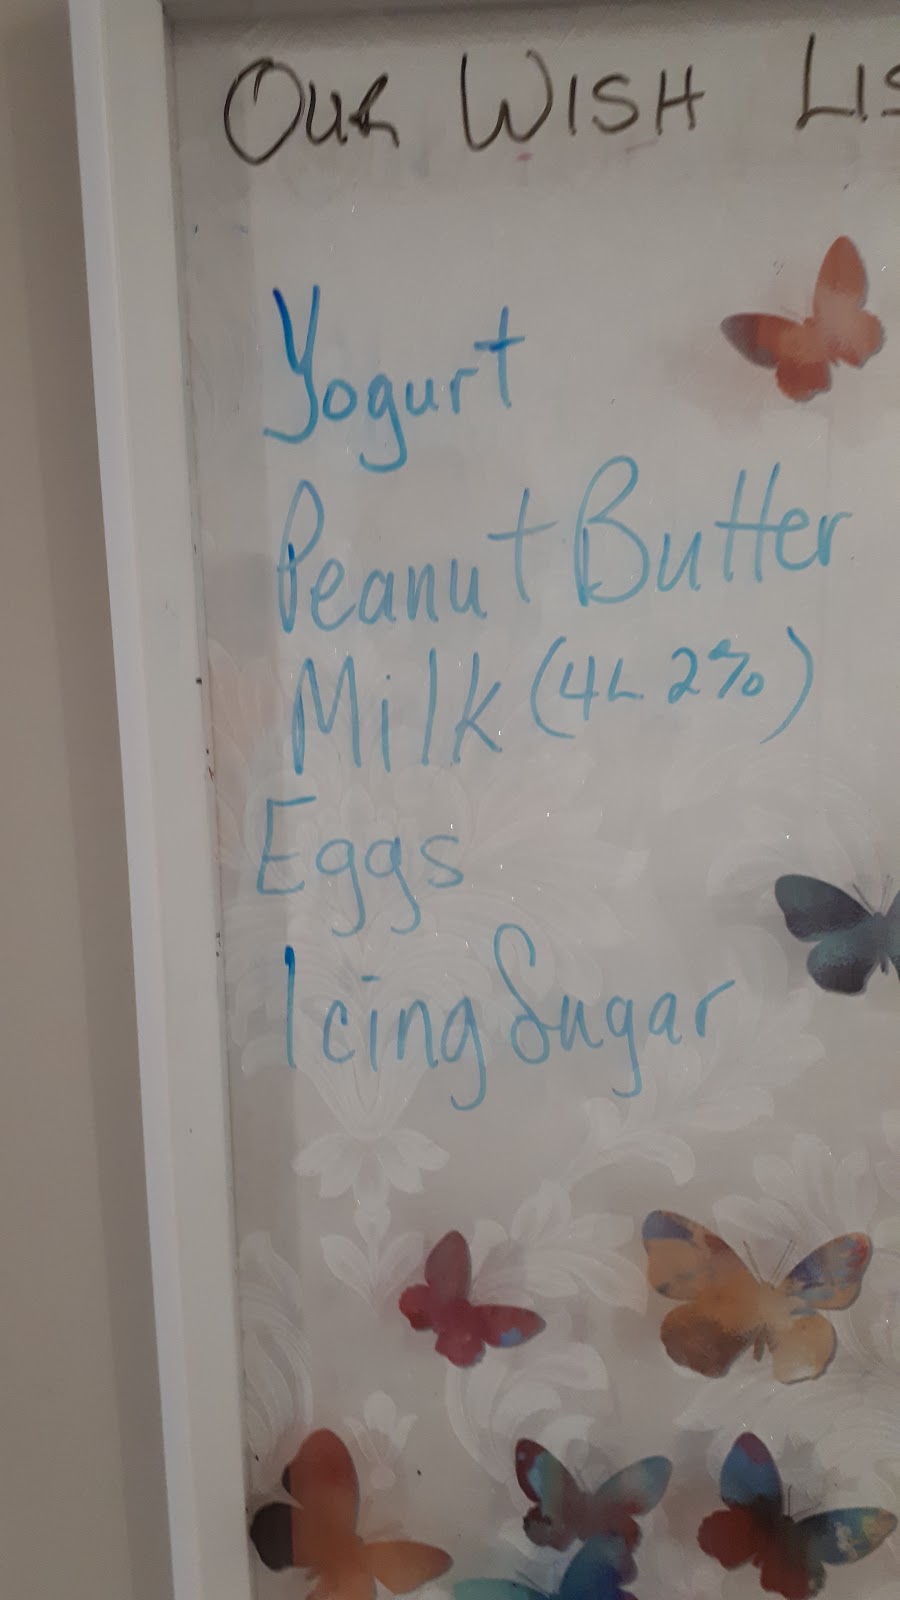 OUR WISH LIS
Yogurt
Peanut Butter
Milk (4L 2%)
Eggs
Icing Sugar